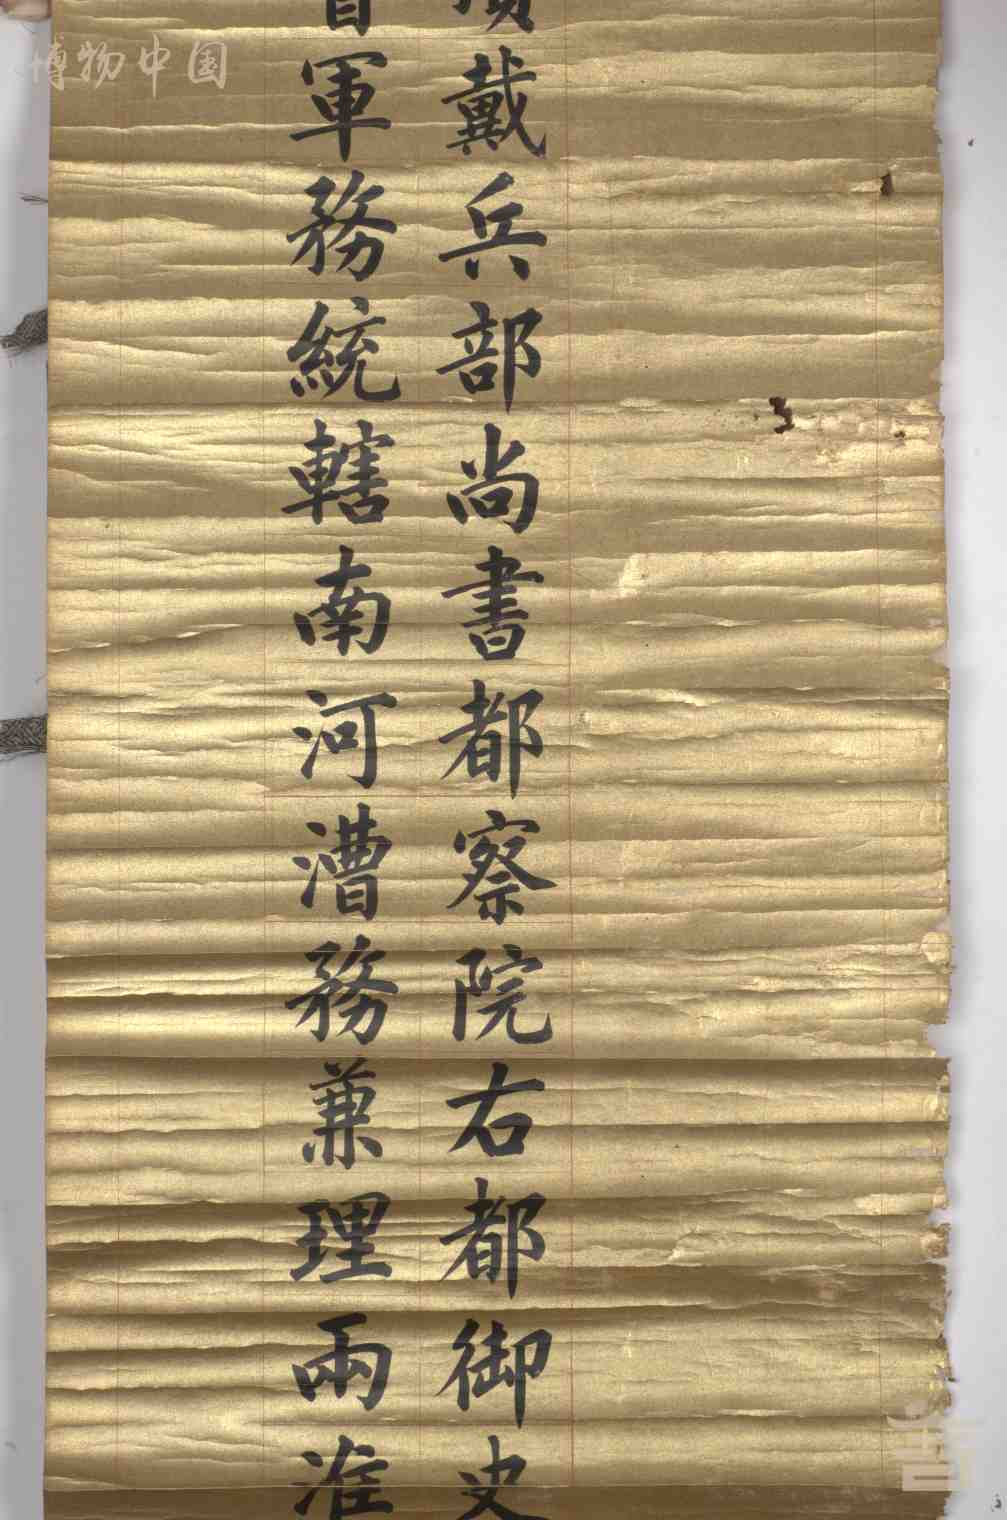 頂戴兵部尚書都察院右都御史
督軍務統轄南河漕務兼理兩淮
博物中国